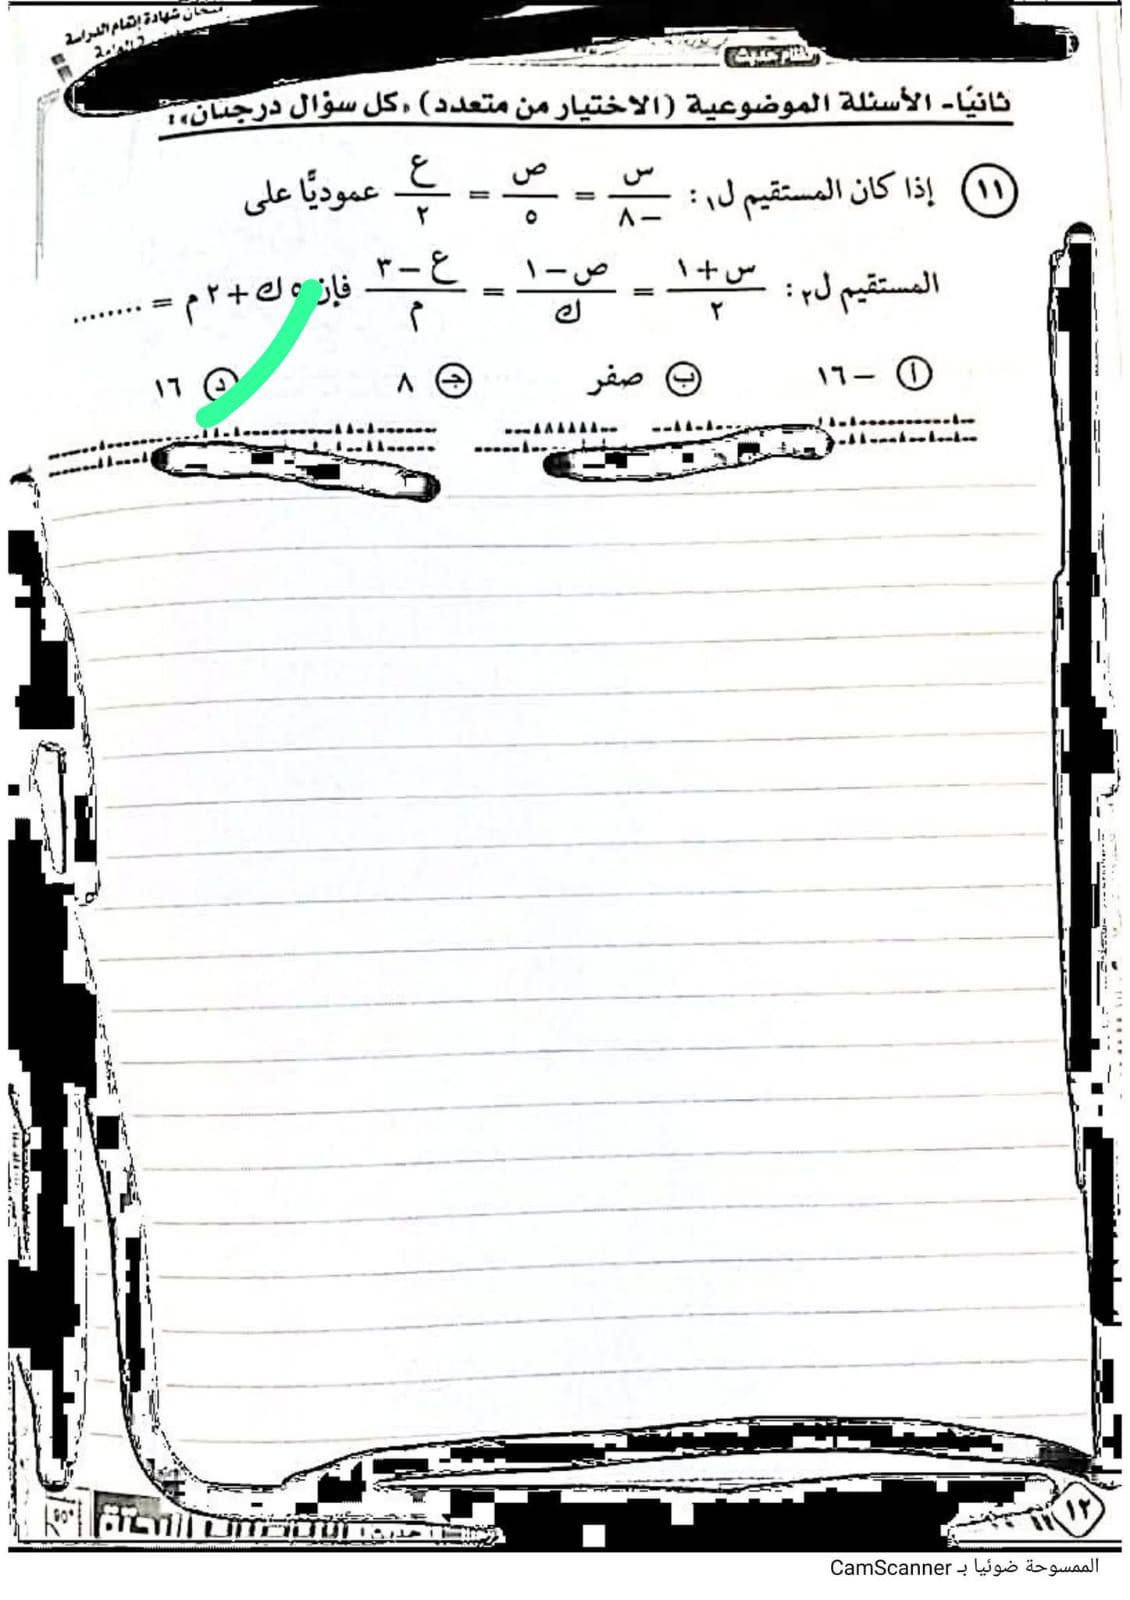 امتحان شهادة إتمام الدراسة
ثانيًا- الأسئلة الموضوعية (الاختيار من متعدد) «كل سؤال درجتان»:
١١ إذا كان المستقيم ل١: س/-٨ = ص/٥ = ع/٢ عموديًّا على
المستقيم ل٢: س+١/٢ = ص-١/ك = ع-٣/م فإن ٥ك+٢م = ........
أ -١٦ ب صفر جـ ٨ د ١٦
١٢
الممسوحة ضوئيا بـ CamScanner